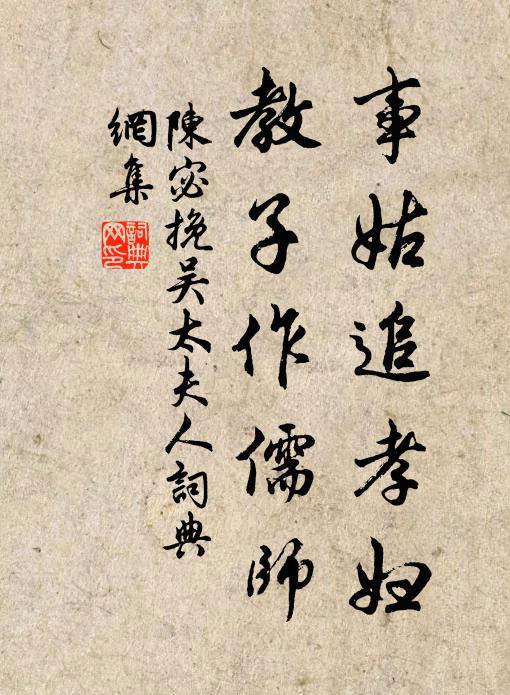 事姑追孝婦
教子作儒師
陳宓挽吴太夫人詞典
網集
詞典網印